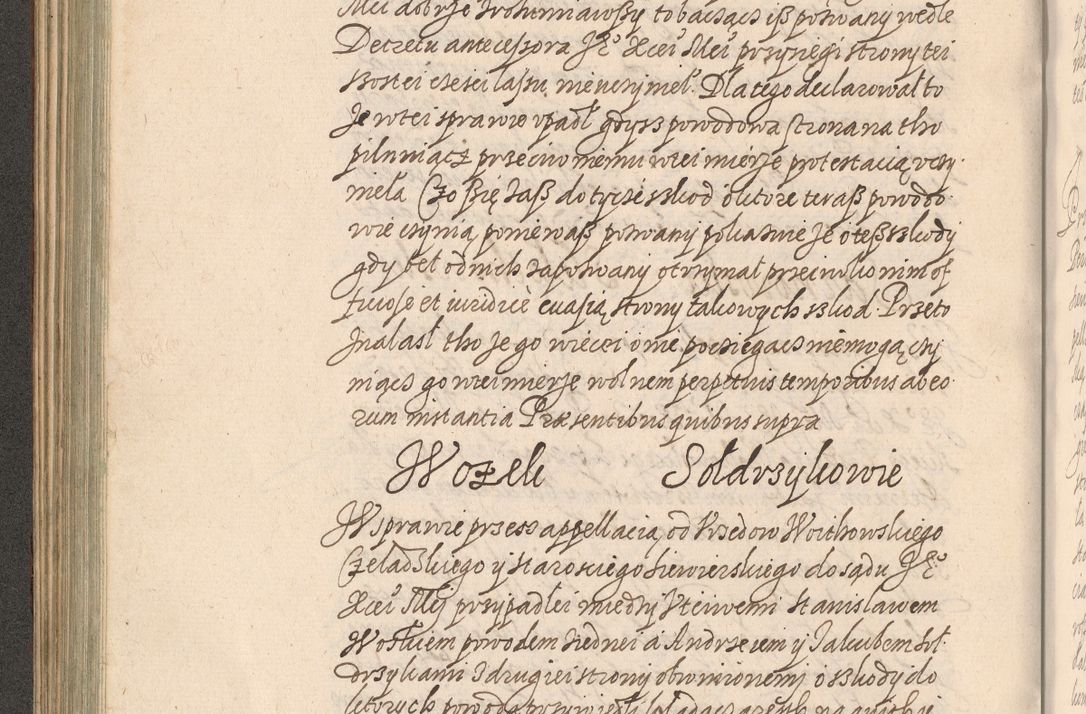 Mci dobrze zrozumiawszy to bacząc isz pozwany wedle
Decretu antecessora Je° Xcei Mci przysięgi strony tei
szostei części lassu nieuczynieł. Dla tego declarował to
Je w tei sprawie upadł gdysz powodowa strona na tho
pilniącz przeciwo niemu w tei mierze protestacią uczy
nieła Czo się zasz dotycze szkod o ktore teras powodo
wie czynią poniewasz pozwany pokazuie Je o tesz szkody
gdy beł od nich zapozwany otrzymał przeciwko nim of
ficiose et iuridice euasią strony takowych szkod. Przeto
Jnalasł tho Je go więcei o nie pociegacz nie mogą czy
niącz go w tei mierze wolnem perpetuis temporibus ab eo
rum instantia Præsentibus quibus supra
Wozek Sołdrzykowie
W sprawie przess appellacią od Vrzedow Woithowskiego
Czeladskiego y Staroscięgo Siewierskiego do sądu Je°
Xcei Mci przypadłei między Vczciwemi Stanisławem
Woskiem powodem z iednei a Andrzeiem y Jakubem Soł
drzykami z drugiei strony obwinionemi o szkody do
ktorych powoda przywiedli